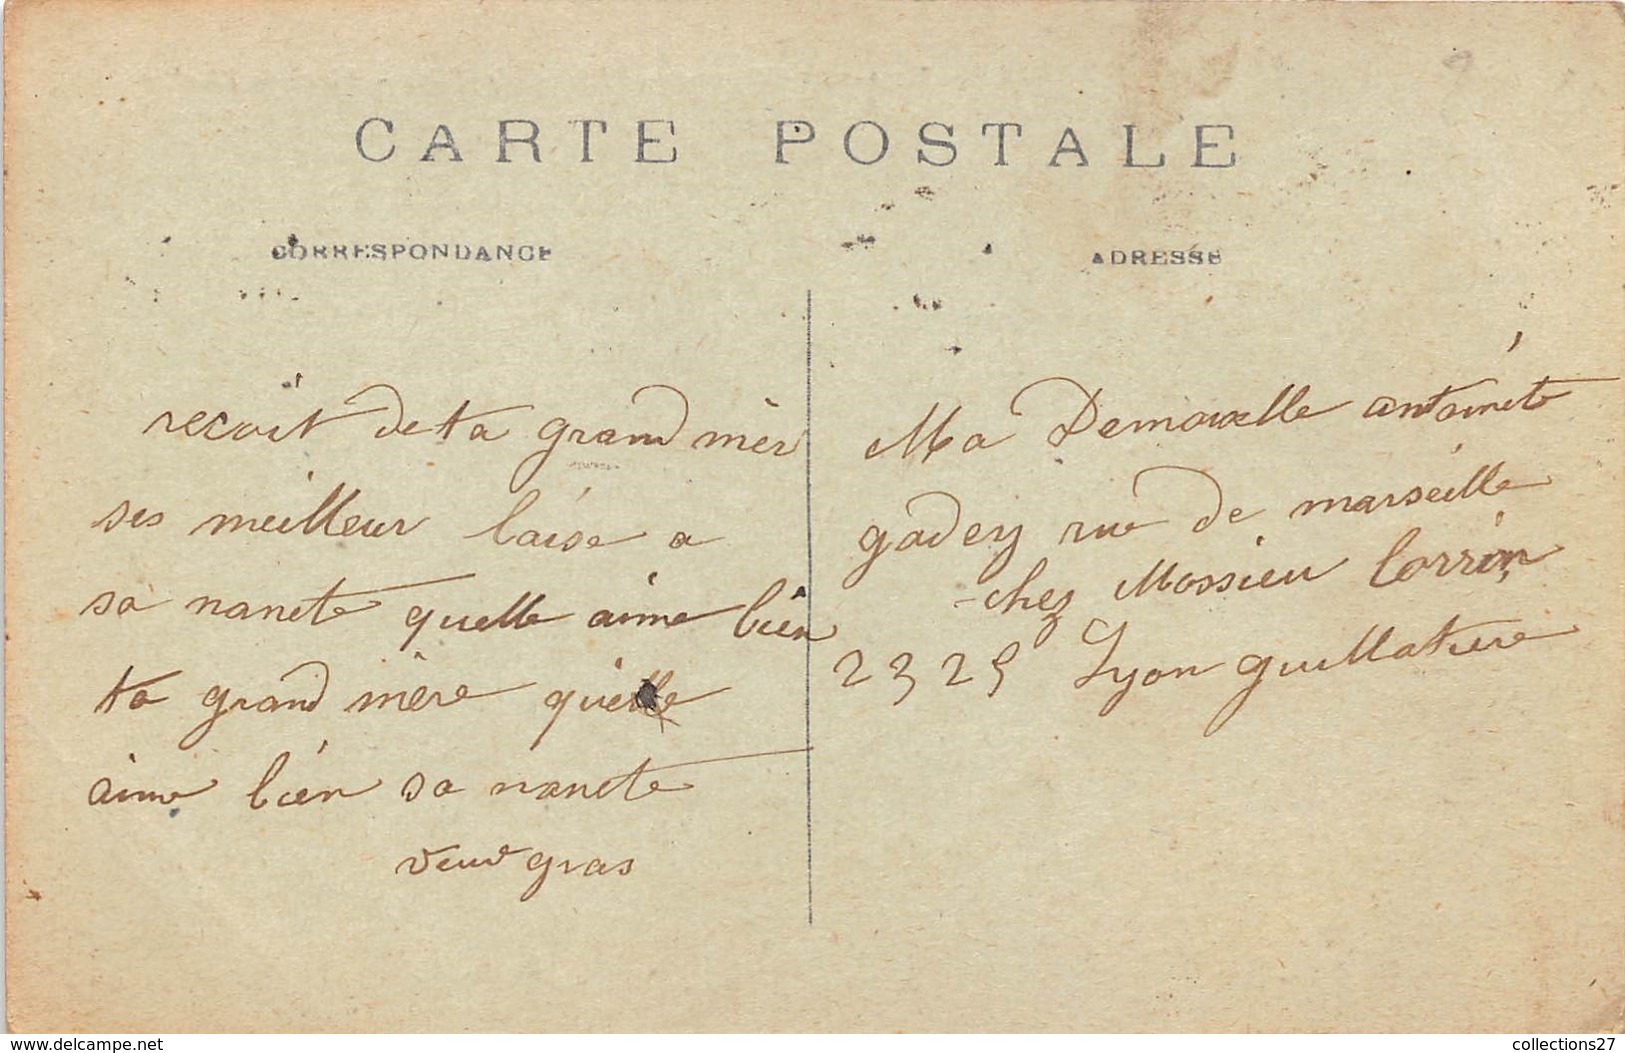 CARTE POSTALE
CORRESPONDANCE
ADRESSE
recoit de ta grand mèr
ses meilleur baise a
sa nanete quelle aime bien
ta grand mère quielle
aime bien sa nanete
veuve gras
Ma Demoiselle antoinete
gadey rue de marseille
chez Mossieu
23 25 Lyon guillotiere
www.delcampe.net
collections27